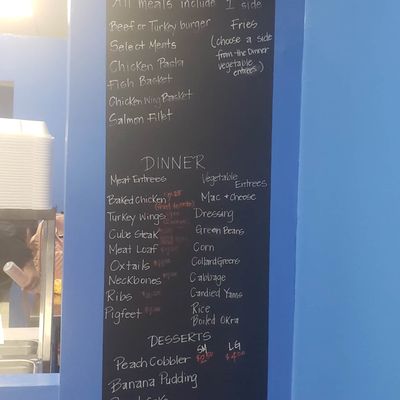 All meals include 1 side
Beef or Turkey burger
Select Meats
Chicken Pasta
Fish Basket
Chicken Wing Basket
Salmon Filet
Fries
(choose a side
from the Dinner
vegetable
entrees)
DINNER
Meat Entrees
Baked Chicken
Turkey Wings
Cube Steak
Meat Loaf
Oxtails
Neckbones
Ribs
Pigfeet
Vegetable
Entrees
Mac & Cheese
Dressing
Green Beans
Corn
Collard Greens
Cabbage
Candied Yams
Rice
Boiled Okra
DESSERTS
SM LG
Peach Cobbler $2.50 $4.00
Banana Pudding